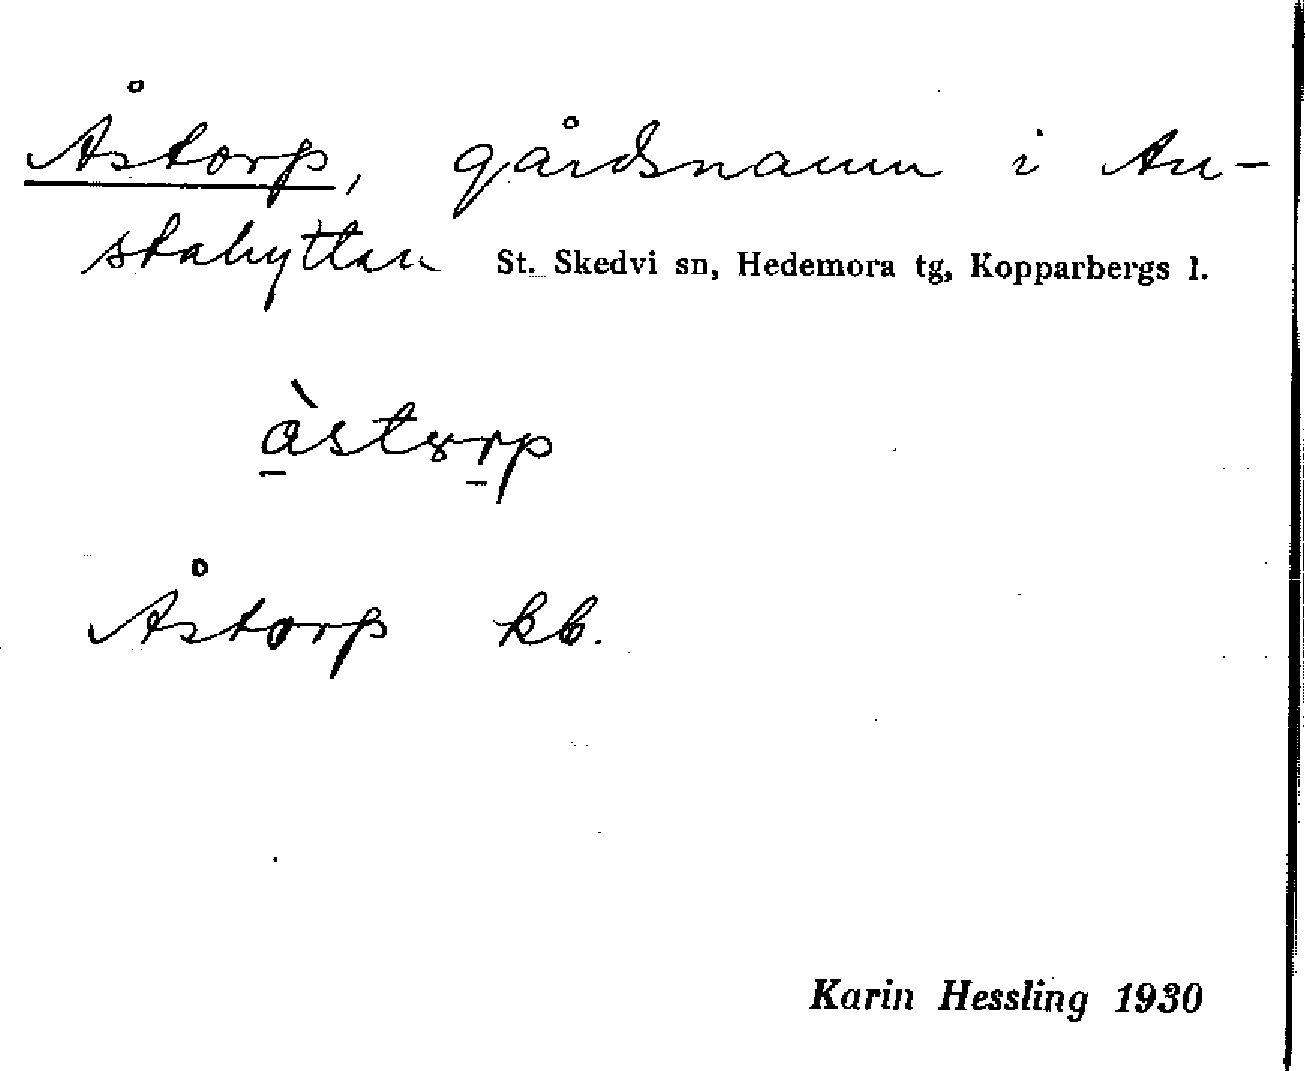 Åstorp, gårdsnamn i An-
stahyttan St. Skedvi sn, Hedemora tg, Kopparbergs l.
åstɤrp
Åstorp kb.
Karin Hessling 1930